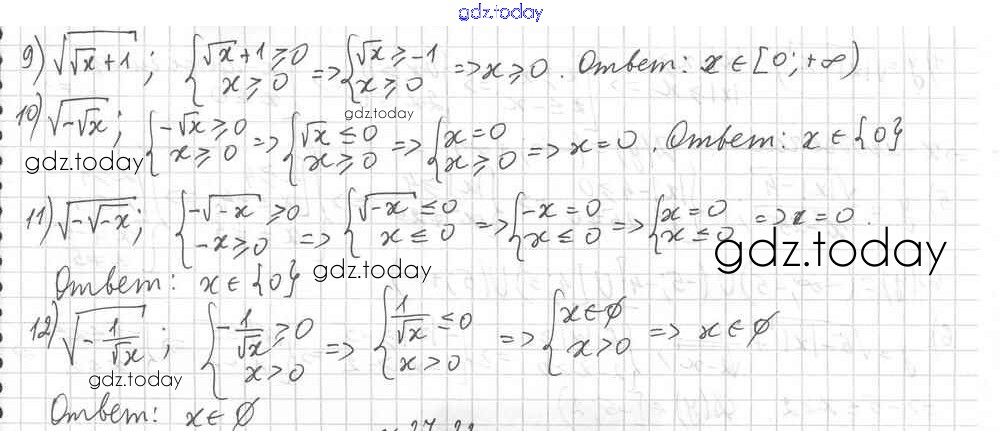 gdz.today
9) √(√x+1) ; {√x+1⩾0 x⩾0 => {√x⩾-1 x⩾0 => x⩾0. Ответ: x∈[0;+∞)
gdz.today
10) √(-√x) ; {-√x⩾0 x⩾0 => {√x⩽0 x⩾0 => {x=0 x⩾0 => x=0. Ответ: x∈{0}
gdz.today
11) √(-√(-x)) ; {-√(-x)⩾0 -x⩾0 => {√(-x)⩽0 x⩽0 => {-x=0 x⩽0 => {x=0 x⩽0 => x=0.
gdz.today
Ответ: x∈{0}
gdz.today
12) √(-1/√x) ; {-1/√x⩾0 x>0 => {1/√x⩽0 x>0 => {x∈∅ x>0 => x∈∅
gdz.today
Ответ: x∈∅